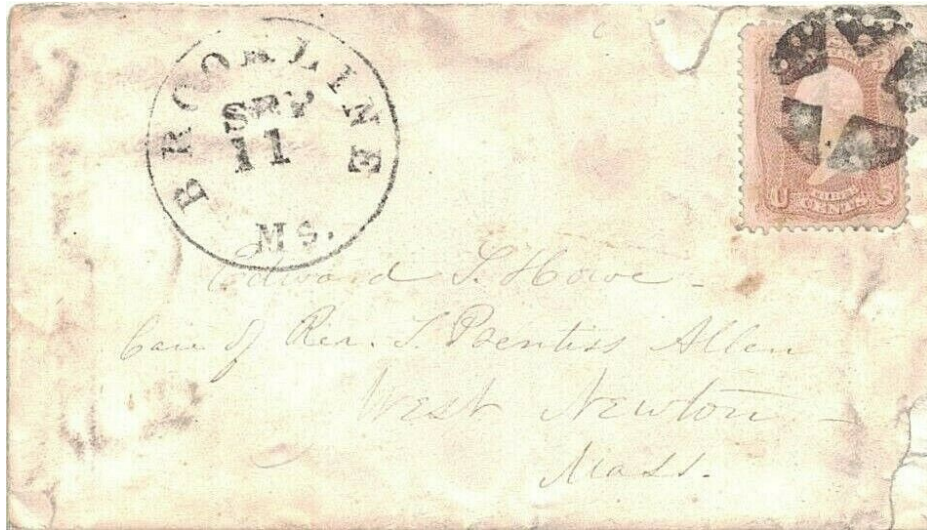 BROOKLINE
SEP
11
Ms.
U S
CENTS
Edward S. Howe -
Care of Rev. T. Prentiss Allen
West Newton -
Mass.